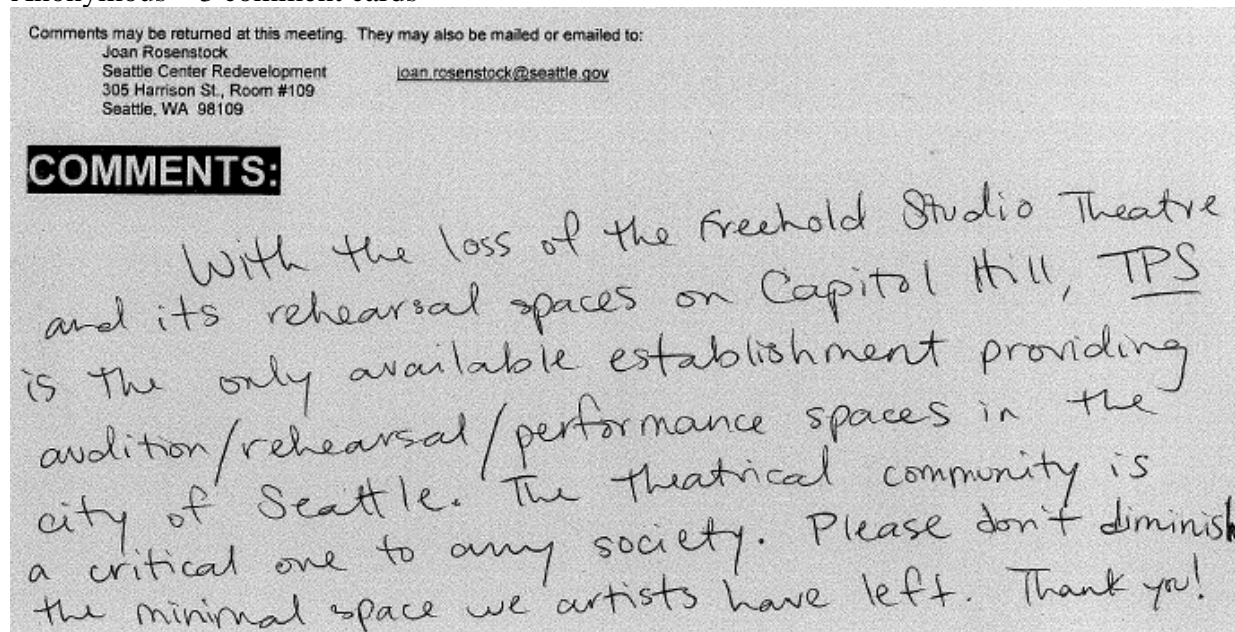 Anonymous – 3 comment cards
Comments may be returned at this meeting. They may also be mailed or emailed to:
Joan Rosenstock
Seattle Center Redevelopment joan.rosenstock@seattle.gov
305 Harrison St., Room #109
Seattle, WA 98109
COMMENTS:
With the loss of the Freehold Studio Theatre
and its rehearsal spaces on Capitol Hill, TPS
is the only available establishment providing
audition/rehearsal/performance spaces in the
city of Seattle. The theatrical community is
a critical one to any society. Please don't diminish
the minimal space we artists have left. Thank you!